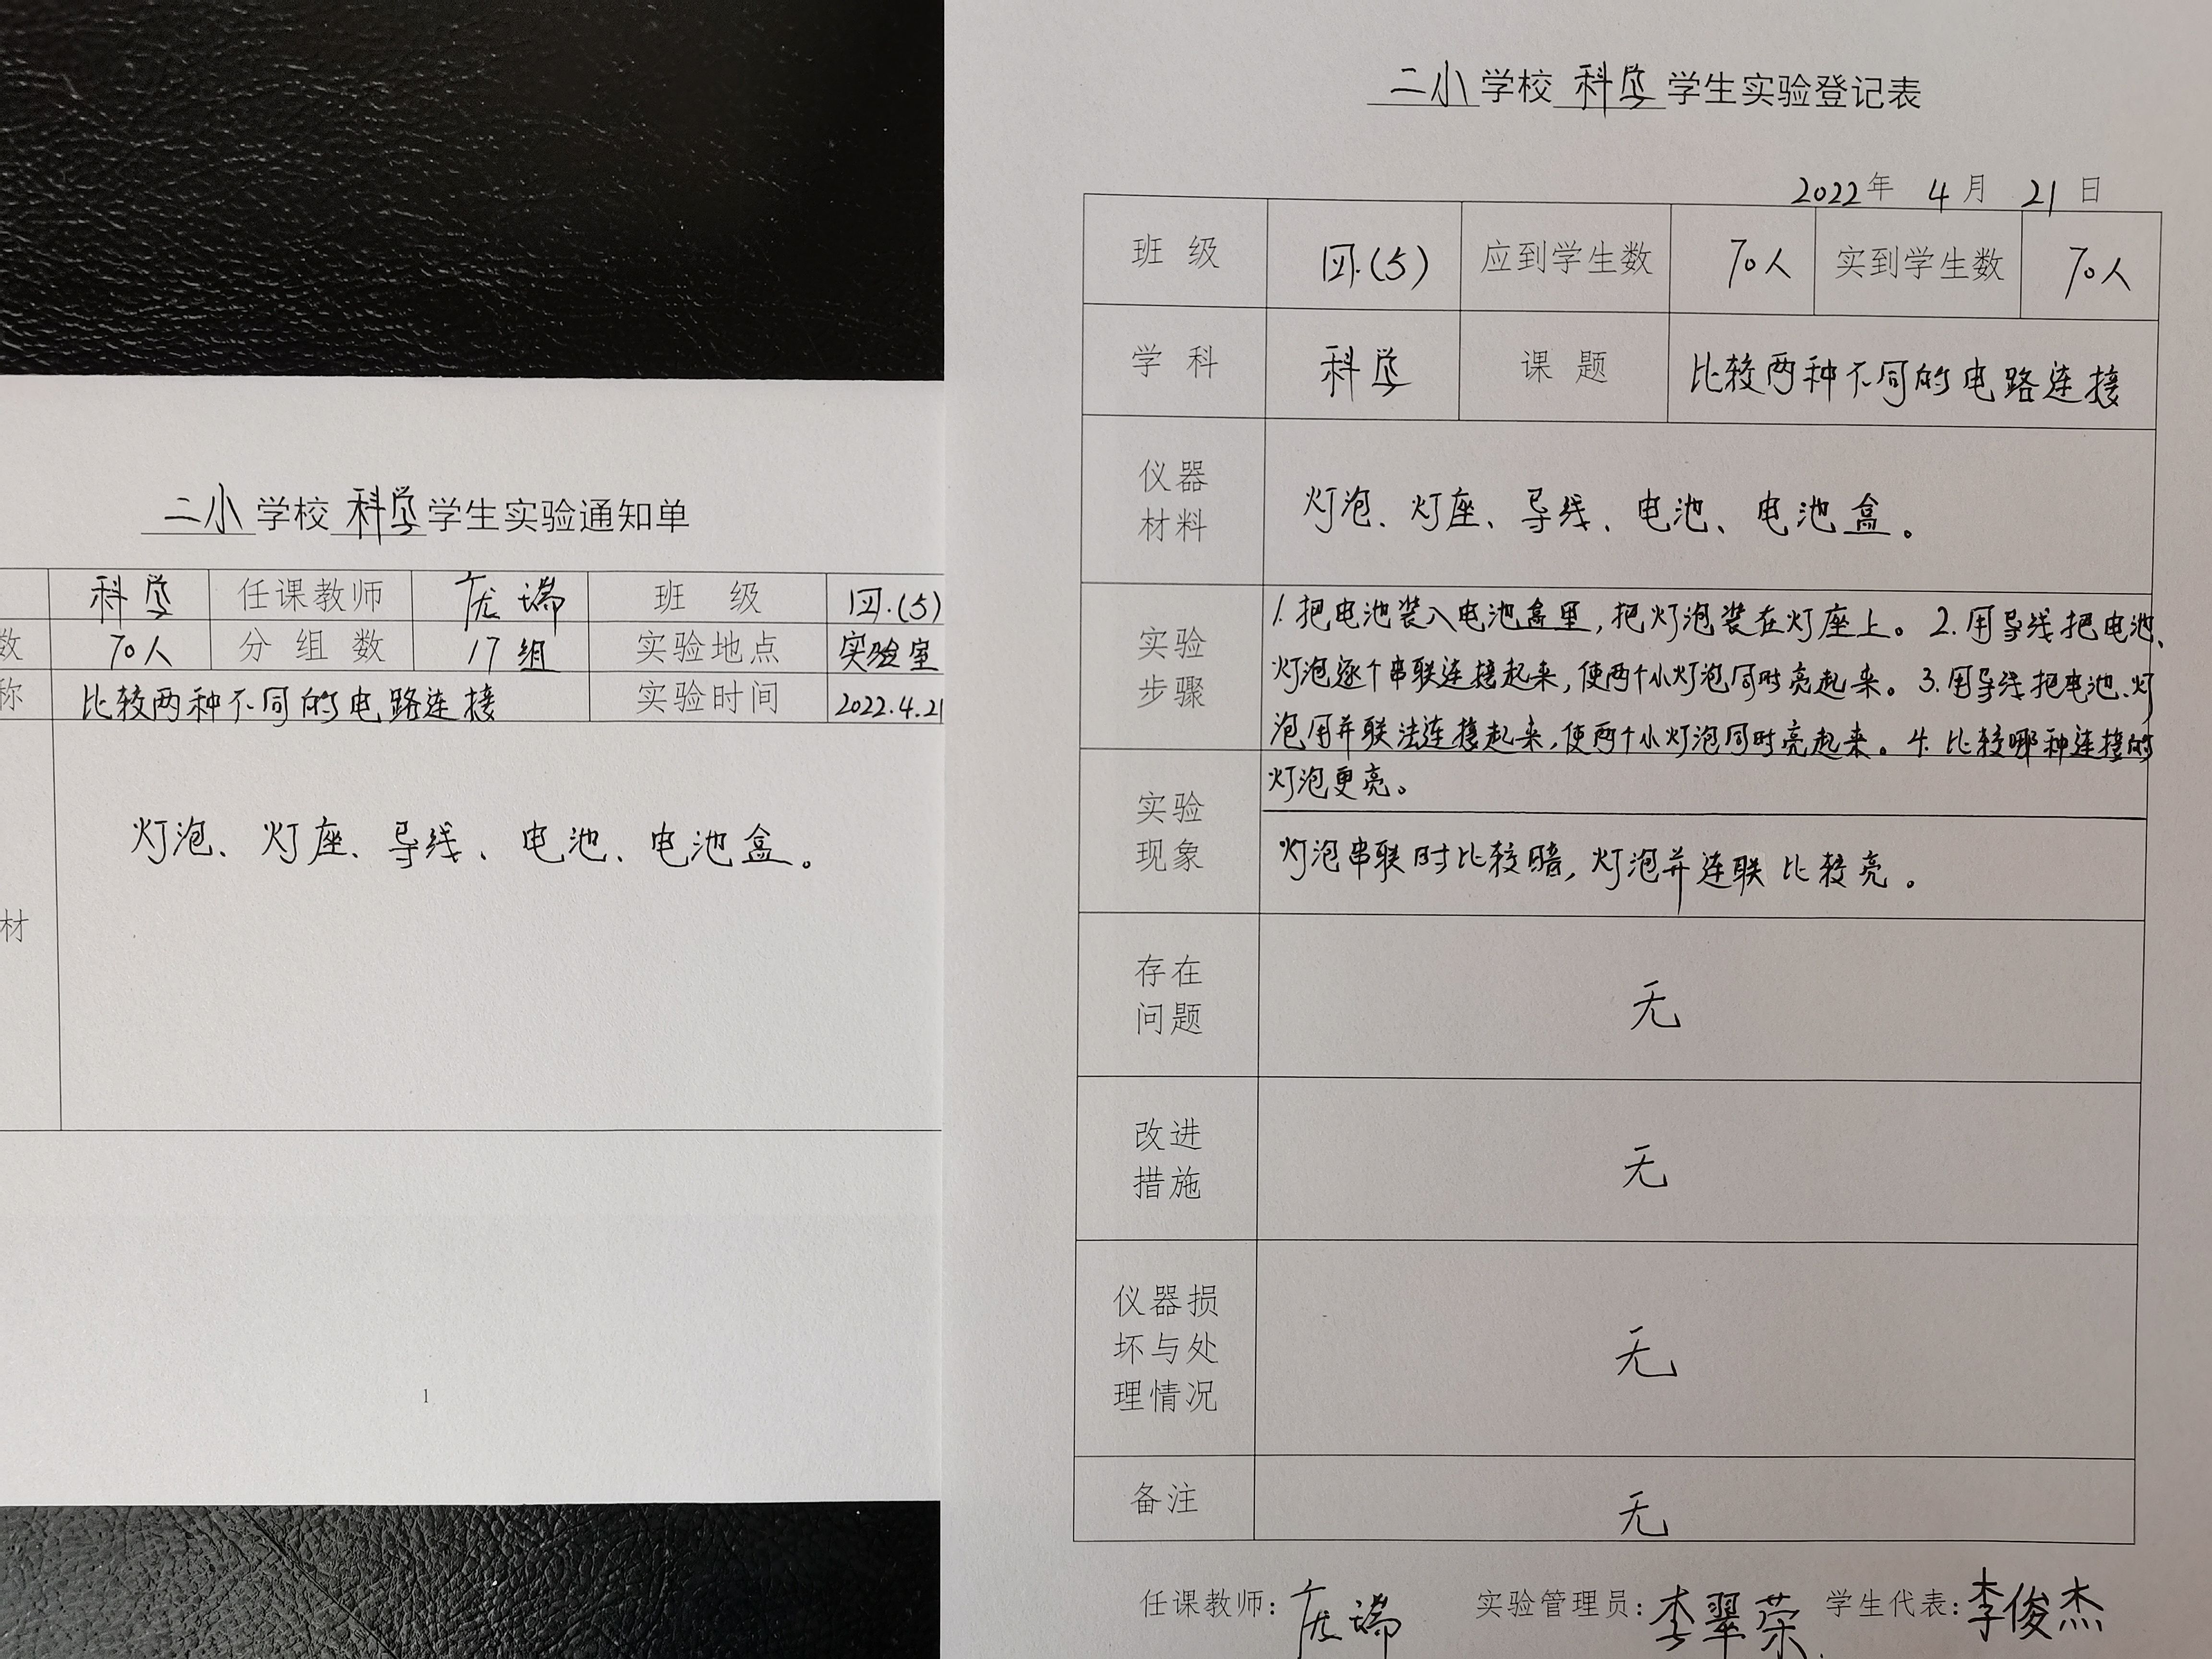 二小学校科学学生实验通知单
科学 任课教师 庞端 班 级 四.(5)
数 70人 分组数 17组 实验地点 实验室
称 比较两种不同的电路连接 实验时间 2022.4.21
材
灯泡、灯座、导线、电池、电池盒。
1
二小学校科学学生实验登记表
2022年 4月 21日
班 级 四.(5) 应到学生数 70人 实到学生数 70人
学 科 科学 课 题 比较两种不同的电路连接
仪器
材料
灯泡、灯座、导线、电池、电池盒。
实验
步骤
1.把电池装入电池盒里,把灯泡装在灯座上。2.用导线把电池、
灯泡逐个串联连接起来,使两个小灯泡同时亮起来。3.用导线把电池、灯
泡用并联法连接起来,使两个小灯泡同时亮起来。4.比较哪种连接的
灯泡更亮。
实验
现象
灯泡串联时比较暗,灯泡并连联比较亮。
存在
问题
无
改进
措施
无
仪器损
坏与处
理情况
无
备注 无
任课教师:庞端 实验管理员:李翠荣 学生代表:李俊杰